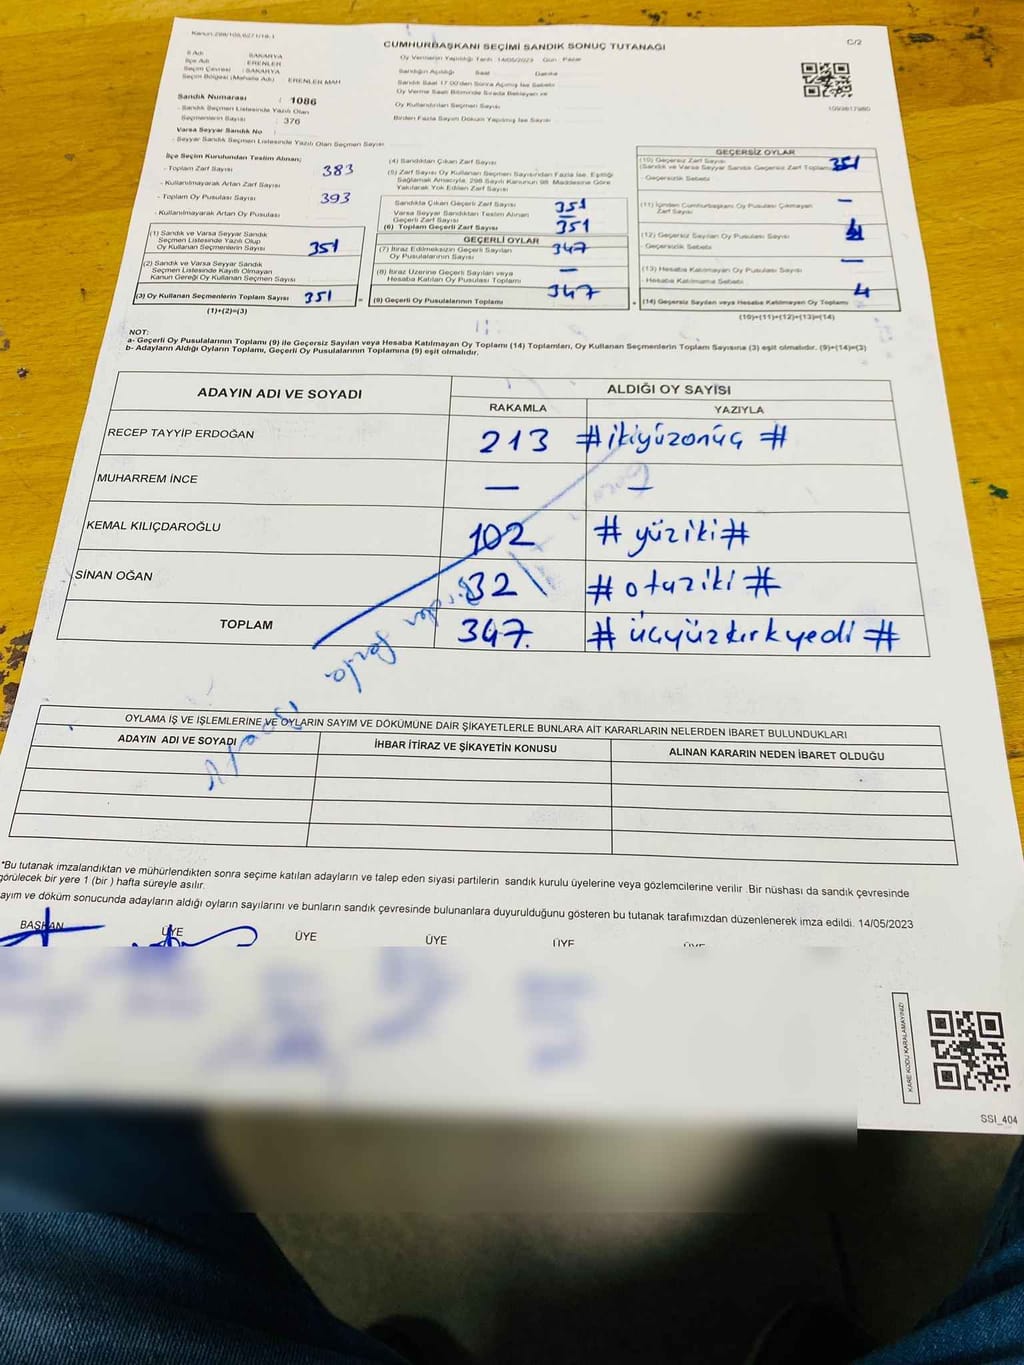 Kanun:298/105,6271/19-1
CUMHURBAŞKANI SEÇİMİ SANDIK SONUÇ TUTANAĞI
C/2
İl Adı : SAKARYA
İlçe Adı : ERENLER
Seçim Çevresi : SAKARYA
Seçim Bölgesi (Mahalle Adı) : ERENLER MAH
Sandık Numarası : 1086
- Sandık Seçmen Listesinde Yazılı Olan
Seçmenlerin Sayısı : 376
Varsa Seyyar Sandık No :
- Seyyar Sandık Seçmen Listesinde Yazılı Olan Seçmen Sayısı
Oy Vermenin Yapıldığı Tarih :14/05/2023 Gün : Pazar
Sandığın Açıldığı Saat Dakika
Sandık Saat 17:00'den Sonra Açılmış İse Sebebi
Oy Verme Saati Bitiminde Sırada Bekleyen ve
Oy Kullandırılan Seçmen Sayısı
Birden Fazla Sayım Döküm Yapılmış İse Sayısı
1099817980
İlçe Seçim Kurulundan Teslim Alınan;
- Toplam Zarf Sayısı 383
- Kullanılmayarak Artan Zarf Sayısı
- Toplam Oy Pusulası Sayısı 393
- Kullanılmayarak Artan Oy Pusulası
(1) Sandık ve Varsa Seyyar Sandık
Seçmen Listesinde Yazılı Olup
Oy Kullanan Seçmenlerin Sayısı 351
(2) Sandık ve Varsa Seyyar Sandık
Seçmen Listesinde Kayıtlı Olmayan
Kanun Gereği Oy Kullanan Seçmen Sayısı
(3) Oy Kullanan Seçmenlerin Toplam Sayısı 351
(1)+(2)=(3)
(4) Sandıktan Çıkan Zarf Sayısı
(5) Zarf Sayısı Oy Kullanan Seçmen Sayısından Fazla İse, Eşitliği
Sağlamak Amacıyla, 298 Sayılı Kanunun 98. Maddesine Göre
Yakılarak Yok Edilen Zarf Sayısı
Sandıkta Çıkan Geçerli Zarf Sayısı 351
Varsa Seyyar Sandıktan Teslim Alınan
Geçerli Zarf Sayısı —
(6) Toplam Geçerli Zarf Sayısı 351
GEÇERLİ OYLAR
(7) İtiraz Edilmeksizin Geçerli Sayılan
Oy Pusulalarının Sayısı 347
(8) İtiraz Üzerine Geçerli Sayılan veya
Hesaba Katılan Oy Pusulası Toplamı —
(9) Geçerli Oy Pusulalarının Toplamı 347
GEÇERSİZ OYLAR
(10) Geçersiz Zarf Sayısı
(Sandık ve Varsa Seyyar Sandık Geçersiz Zarf Toplamı) 351
- Geçersizlik Sebebi
(11) İçinden Cumhurbaşkanı Oy Pusulası Çıkmayan
Zarf Sayısı —
(12) Geçersiz Sayılan Oy Pusulası Sayısı 4
- Geçersizlik Sebebi
(13) Hesaba Katılmayan Oy Pusulası Sayısı —
- Hesaba Katılmama Sebebi
(14) Geçersiz Sayılan veya Hesaba Katılmayan Oy Toplamı 4
(10)+(11)+(12)+(13)=(14)
NOT:
a- Geçerli Oy Pusulalarının Toplamı (9) ile Geçersiz Sayılan veya Hesaba Katılmayan Oy Toplamı (14) Toplamları, Oy Kullanan Seçmenlerin Toplam Sayısına (3) eşit olmalıdır. (9)+(14)=(3)
b- Adayların Aldığı Oyların Toplamı, Geçerli Oy Pusulalarının Toplamına (9) eşit olmalıdır.
ADAYIN ADI VE SOYADI
ALDIĞI OY SAYISI
RAKAMLA YAZIYLA
RECEP TAYYİP ERDOĞAN 213 #ikiyüzonüç #
MUHARREM İNCE — —
KEMAL KILIÇDAROĞLU 102 # yüziki #
SİNAN OĞAN 32 # otuziki #
TOPLAM 347. # üçyüzkırkyedi #
OYLAMA İŞ VE İŞLEMLERİNE VE OYLARIN SAYIM VE DÖKÜMÜNE DAİR ŞİKAYETLERLE BUNLARA AİT KARARLARIN NELERDEN İBARET BULUNDUKLARI
ADAYIN ADI VE SOYADI İHBAR İTİRAZ VE ŞİKAYETİN KONUSU ALINAN KARARIN NEDEN İBARET OLDUĞU
*Bu tutanak imzalandıktan ve mühürlendikten sonra seçime katılan adayların ve talep eden siyasi partilerin sandık kurulu üyelerine veya gözlemcilerine verilir .Bir nüshası da sandık çevresinde
görülecek bir yere 1 (bir ) hafta süreyle asılır.
ayım ve döküm sonucunda adayların aldığı oyların sayılarını ve bunların sandık çevresinde bulunanlara duyurulduğunu gösteren bu tutanak tarafımızdan düzenlenerek imza edildi. 14/05/2023
BAŞKAN ÜYE ÜYE ÜYE ÜYE ÜYE
KARE KODU KARALAMAYINIZ!
SSI_404